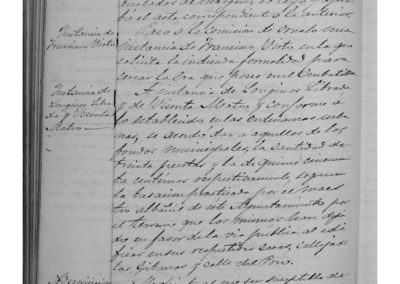 Instancia de
Francisco Vistos
Pasa á la Comision de Ornato una
instancia de Francisco Vistos en la que
solicita la indicada formalidad para
cerrar la Era que posee en el Donbatillo
Instancia de
Longinos Libra
da y Vicenta
Mateo
A instancia de Longinos Librada
y de Vicenta Mateo y conforme a
lo establecido en las Ordenanzas urba
nas, se acordó dar a aquellos de los
fondos municipales, la cantidad de
treinta pesetas y la de quince cincuen
ta centimos respectivamente, segun
la tasacion practicada por el maes
tro albañil de este Ayuntamiento por
el terreno que los mismos han deja
do en favor de la via publica al edi
ficar en sus respectivas casas, Calleja de
las Gitanas y calle del Pino.